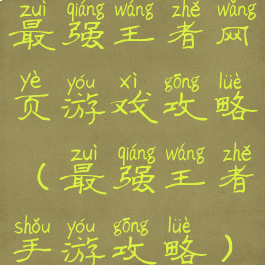 zuì qiáng wáng zhě wǎng
最强王者网
yè yóu xì gōng lüè
页游戏攻略
zuì qiáng wáng zhě
（最强王者
shǒu yóu gōng lüè
手游攻略）